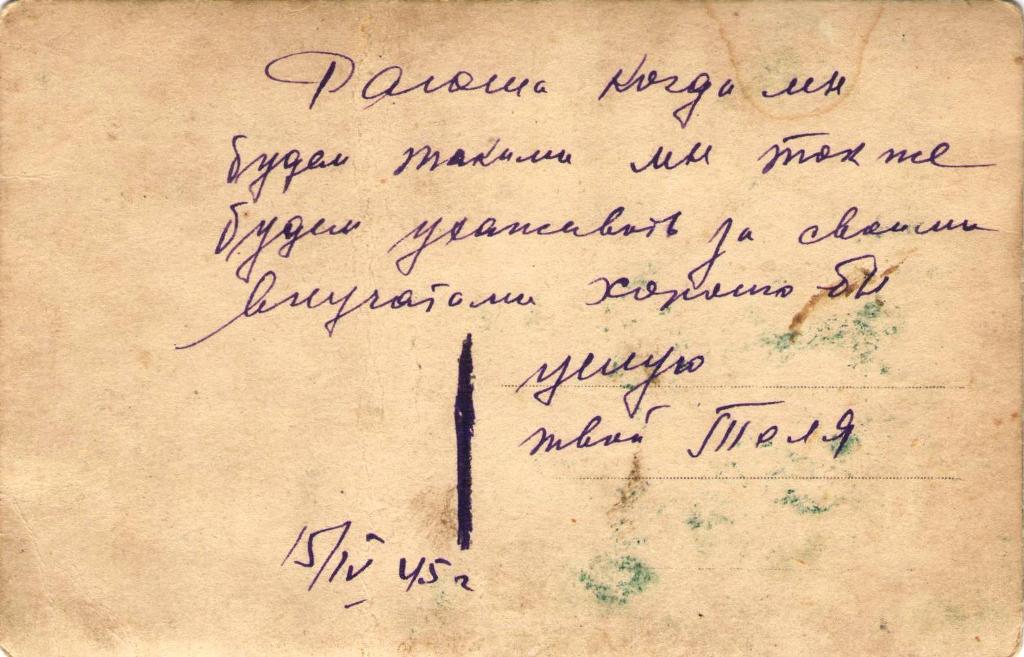 Рагоша когда мы
будем такими мы так же
будем ухаживать за своими
внучатами хорошо бы
целую
твой Толя
15/IV 45 г